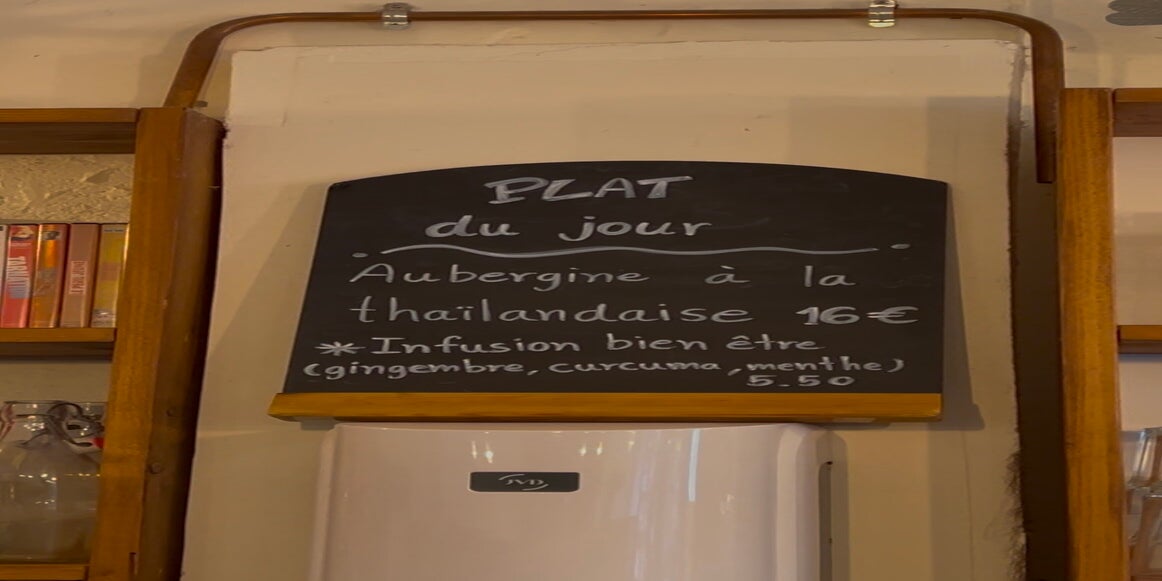 PLAT
du jour
Aubergine à la
thaïlandaise 16€
*Infusion bien être
(gingembre, curcuma, menthe)
5.50
JVD